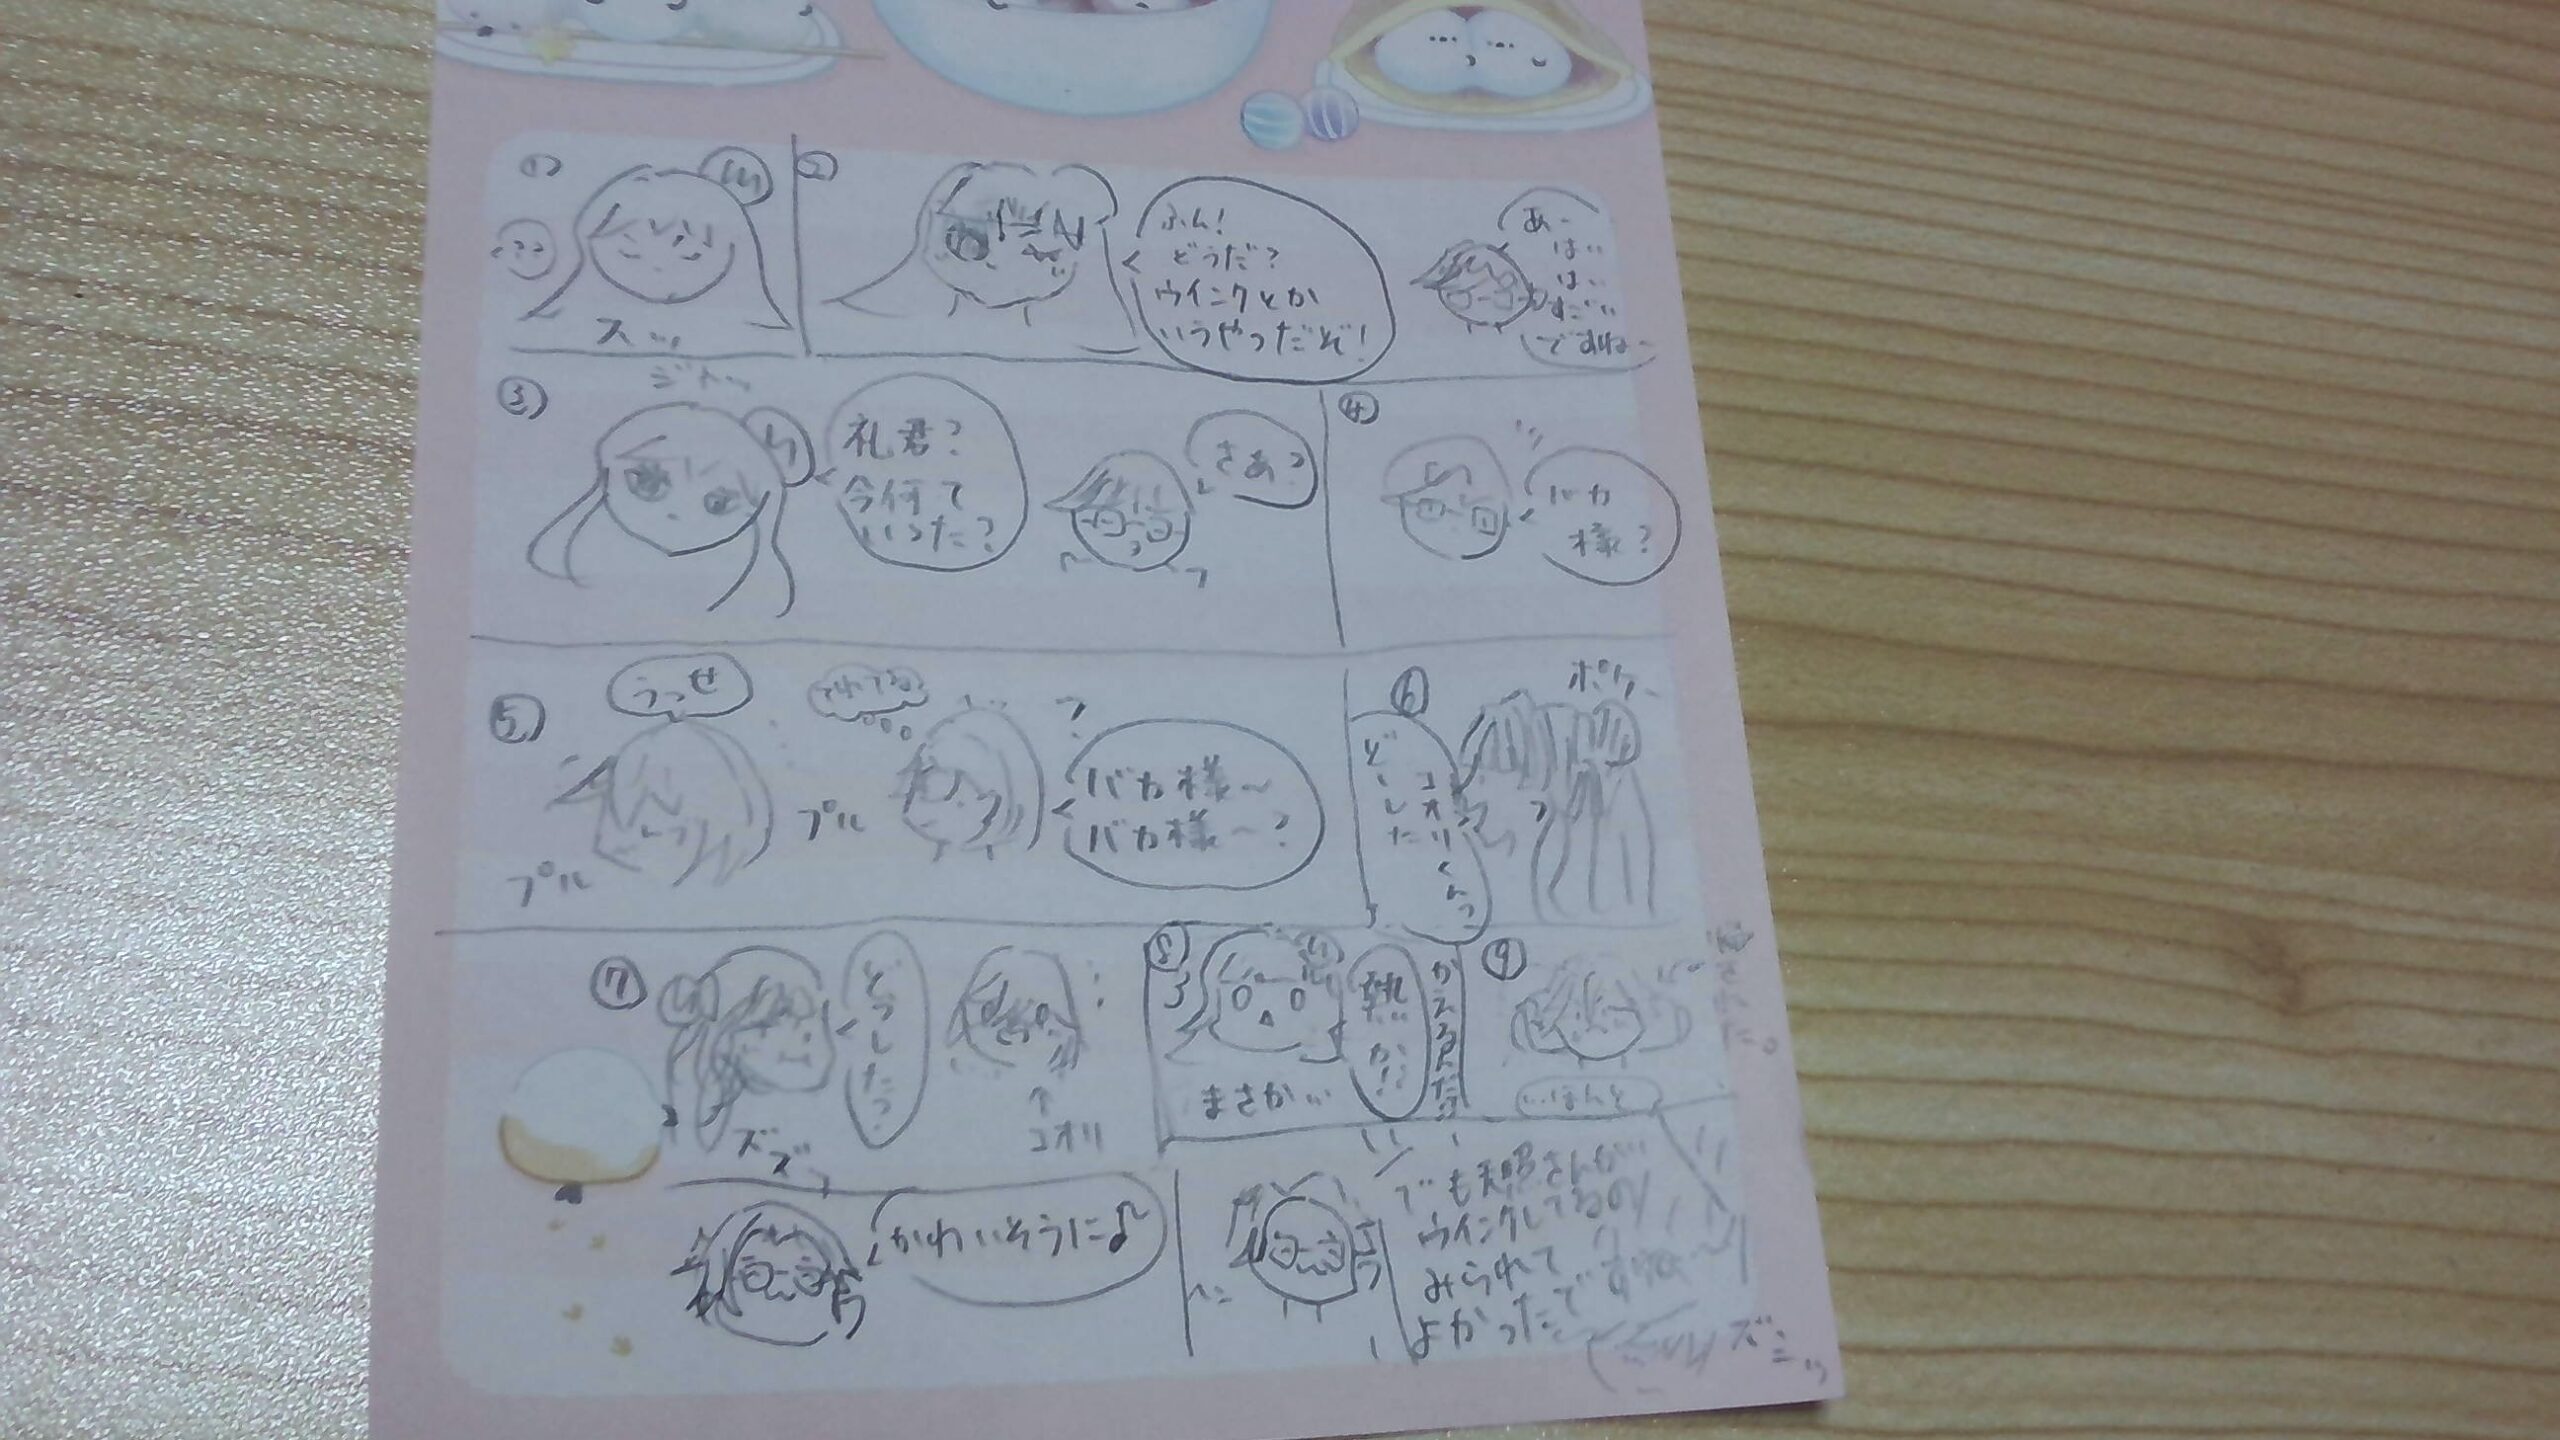 ①
スッ
②
ふん!
どうだ?
ウインクとか
いうやつだぞ!
あー
はい
はい
すごい
ですねー
③
ジトーッ
礼君?
今何て
いった?
さあ?
④
バカ
様?
⑤
うっせ
プル
プル
てれてる
?
バカ様~
バカ様~?
⑥
ポケー
コオリくんっ
どーした
⑦
どうしたっ
ズズッ
↑
コオリ
⑧
まさか…
熱か!
⑨
…ほんと
かわいそうに♪
でも天照さんが…
ウインクしてるの
みられて
よかったですねー